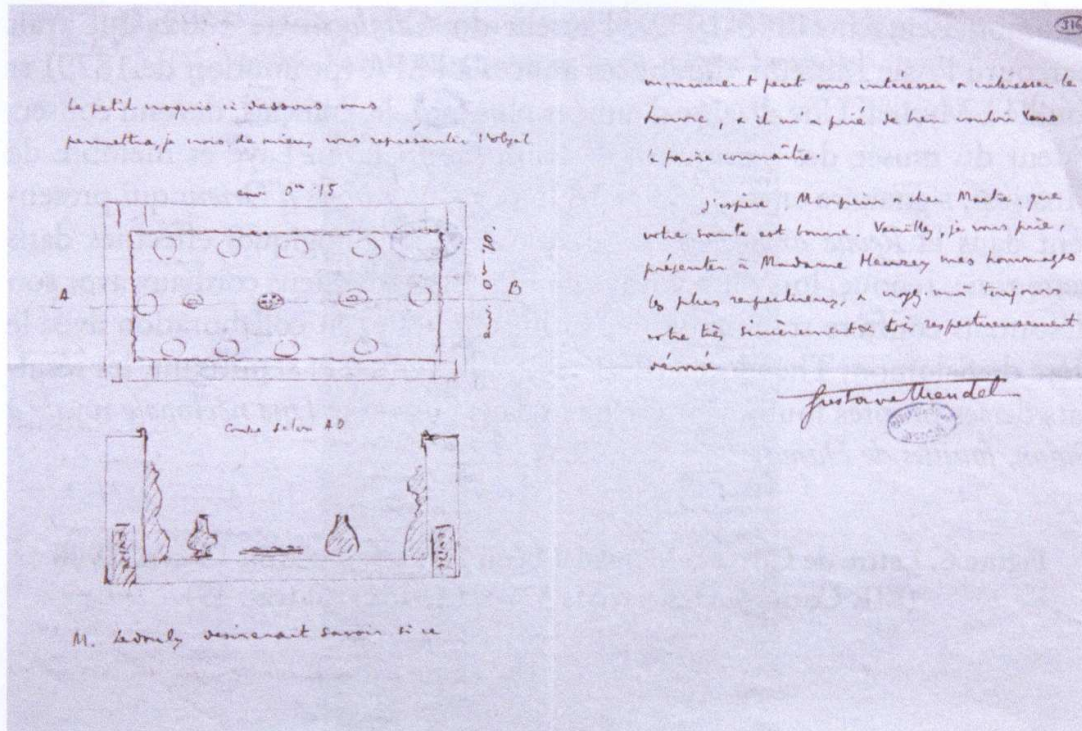 Le petit croquis ci dessous vous
permettra, je crois, de mieux vous représenter l'objet
env. 0m 15
A
B
env. 0m 10.
Coupe selon AB
M. Ledoulx désirerait savoir si ce
316
monument peut vous intéresser & intéresser le
Louvre, & il m'a prié de bien vouloir
paire connaître.
J'espère Monsieur & cher Maître, que
votre santé est bonne. Veuillez, je vous prie,
présenter à Madame Heuzey mes hommages
les plus respectueux, & me toujours
votre très sincèrement & très respectueusement
dévoué
Gustave Mendel